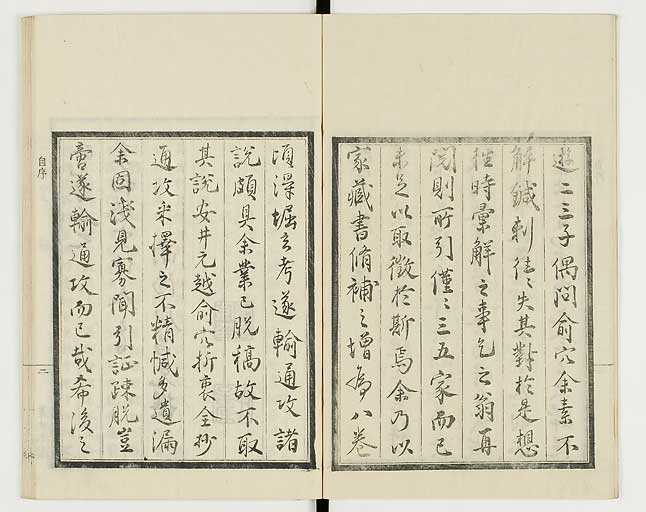 遊二三子偶問俞穴余素不
解鍼刺徃〻失其對於是想
徃時彙解之事乞之翁再
閲則所引僅〻三五家而已
未足以取徴於斯焉余乃以
家藏書脩補之增為八卷
頃澤堀玄考遂輸通攷諸
說頗具余業已脫稿故不取
其說安井元越俞穴折衷全抄
通攷米擇之不精憾多遺漏
余固淺見寡聞引証疎脫豈
啻遂輸通攷而已哉希後之
自序
二